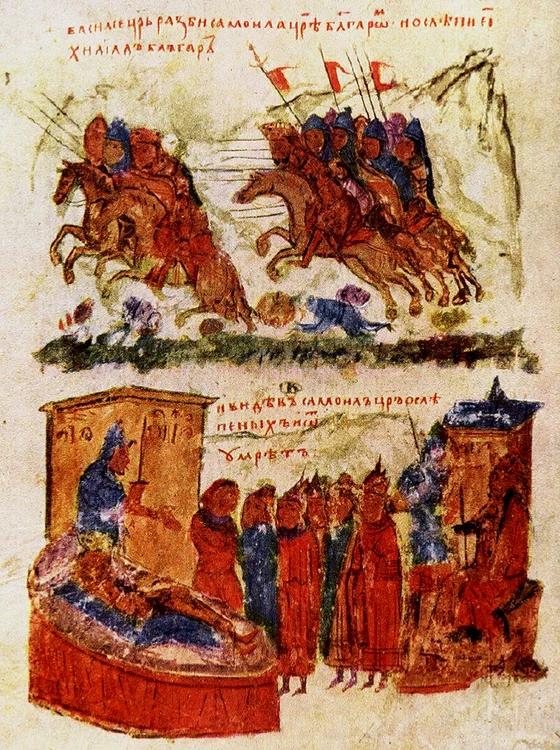 василїе црь разби самоила црѣ блгарѡм · и ослѣпи еі
хиліадъ блъгаръ
и видѣвъ самоилъ црь ослѣ
пеныхъ
умрѣтъ